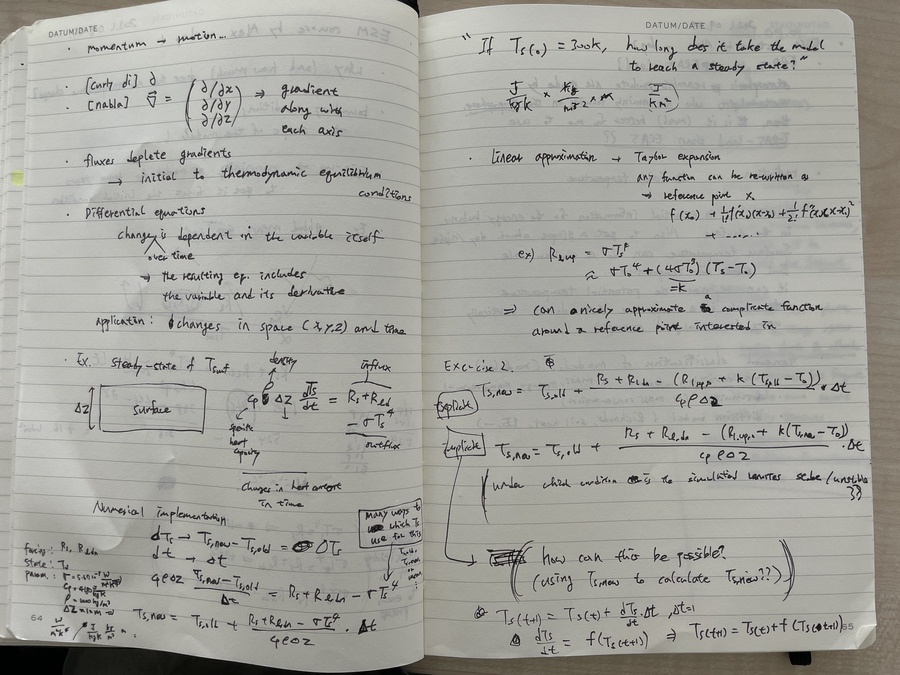 DATUM/DATE
· momentum → motion...
· [curly di] ∂
· [nabla] ∇⃗ = (∂/∂x ∂/∂y ∂/∂z) ⇒ gradient
along with
each axis
· fluxes deplete gradients
→ initial to thermodynamic equilibrium
conditions
· Differential equations
change is dependent on the variable itself
over time
→ the resulting eq. includes
the variable and its derivative
Application: changes in space (x, y, z) and time
· Ex. steady-state of Tsurf
density
influx
Δz
surface
cp ρ Δz dTs/dt = Rs + Rld
− σTs⁴
specific
heat
capacity
outflux
changes in heat
in time
Numerical implementation
many ways to
which Ts
use for this
dTs → Ts,new − Ts,old = ΔTs
dt → Δt
cp ρ Δz (Ts,new − Ts,old)/Δt = Rs + Rldn − σTs⁴
forcing: Rs, Rldn
state: Ts
param.:
Ts,new = Ts,old + (Rs + Rldn − σTs⁴)/(cp ρ Δz) · Δt
64
DATUM/DATE
" If Ts(0) = 300K, how long does it take the model
to reach a steady state? "
· Linear approximation → Taylor expansion
any function can be rewritten
→ reference point x
f(x₀) + 1/1! f'(x₀)(x−x₀) + 1/2! f''(x₀)(x−x₀)²
+ ......
ex) Rl,up = σTs⁴
≈ σT₀⁴ + (4σT₀³)(Ts − T₀)
=k
⇒ can nicely approximate a complicate function
around a reference point interested in
Exercise 2.
explicit
Ts,new = Ts,old + (Rs + Rl,dn − (Rl,up,0 + k (Ts,old − T₀)))/(cp ρ Δz) · Δt
implicit
Ts,new = Ts,old + (Rs + Rl,dn − (Rl,up,0 + k (Ts,new − T₀)))/(cp ρ Δz) · Δt
under which condition is the simulated stable/unstable
??
How can this be possible?
(using Ts,new to calculate Ts,new??)
Ts(t+1) = Ts(t) + dTs/dt · Δt, Δt=1
dTs/dt = f(Ts(t+1)) ⇒ Ts(t+1) = Ts(t) + f(Ts(t+1))
65